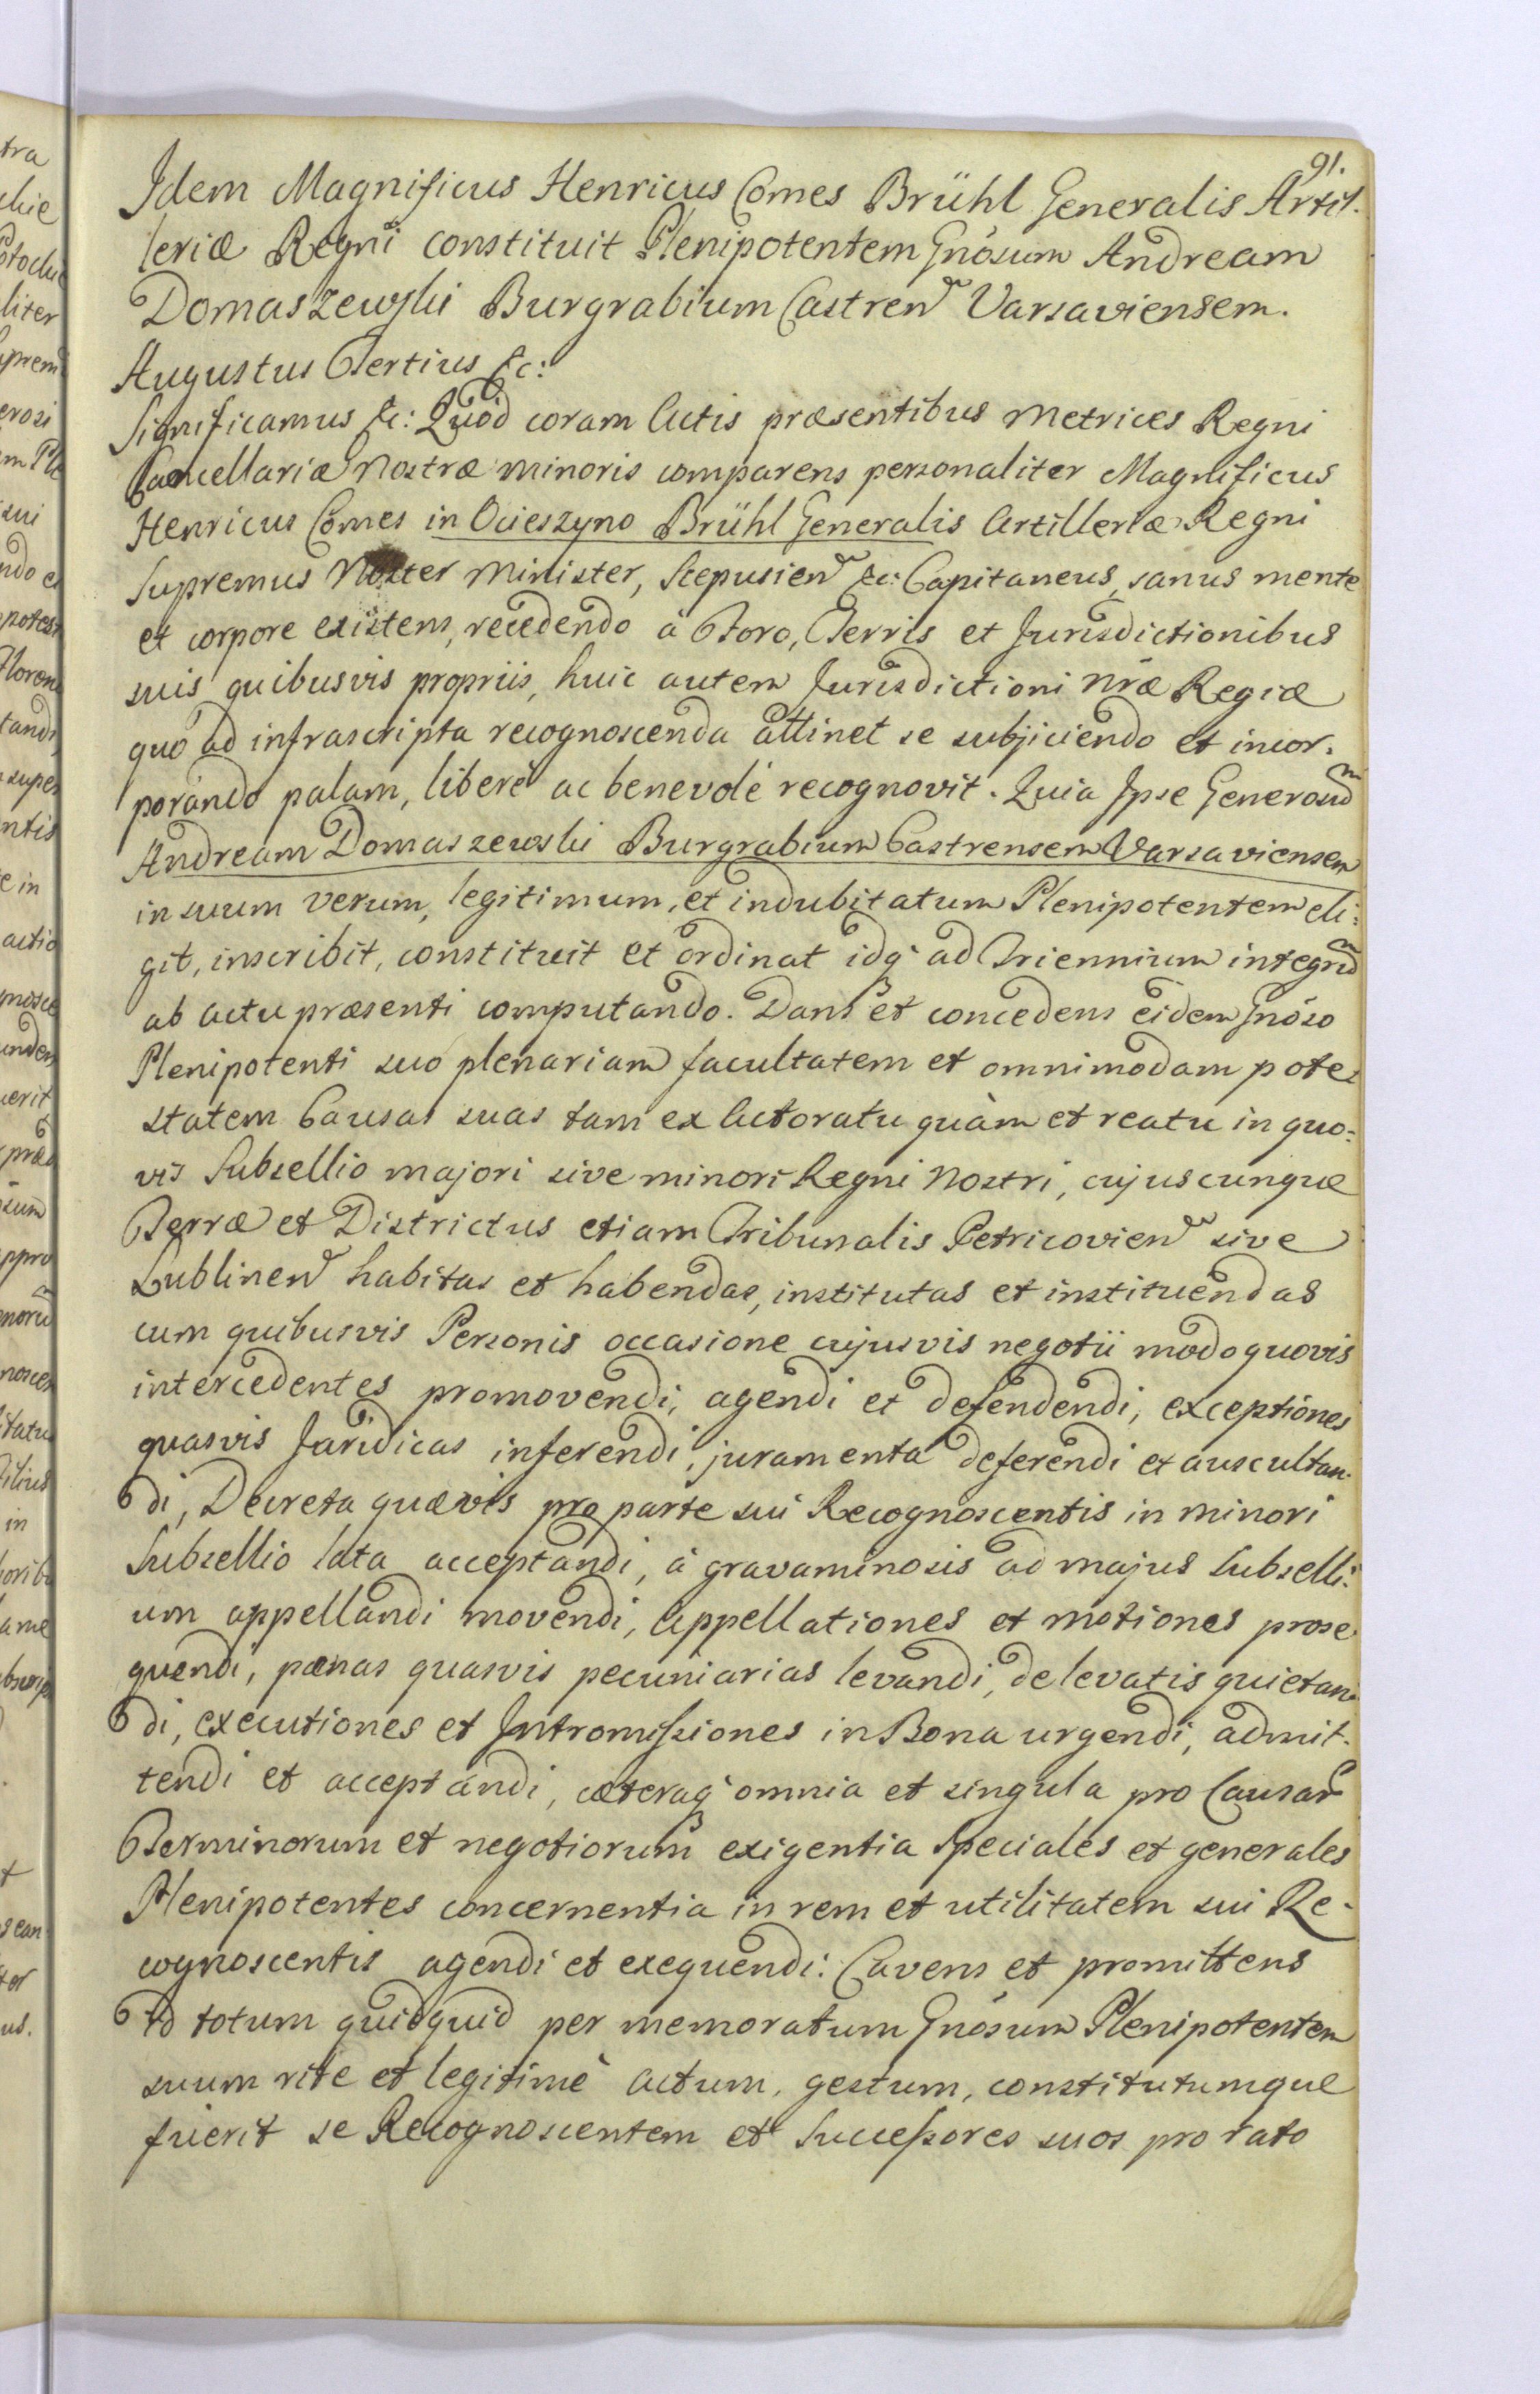 91.
Idem Magnificus Henricus Comes Brühl Generalis Artil-
leriæ Regni constituit Plenipotentem Gnôsum Andream
Domaszewski Burgrabium Castren Varsaviensem.
Augustus Tertius &c:
Significamus &c: Quòd coram Actis præsentibus Metrices Regni
Cancellariæ Nostræ minoris comparens personaliter Magnificus
Henricus Comes in Ocieszyno Brühl Generalis Artilleriæ Regni
Supremus Noster Minister, Scepusien &c: Capitaneus, sanus mente
et corpore existens, recedendo à Foro, Terris et Jurisdictionibus
suis quibusvis propriis, huic autem Jurisdictioni Nræ Regiæ
quo ad infrascripta recognoscenda attinet se subjiciendo et incor-
porando palam, liberè ac benevolè recognovit. Quia Ipse Generosum
Andream Domaszewski Burgrabium Castrensem Varsaviensem
in suum verum, legitimum, et indubitatum Plenipotentem eli-
git, inscribit, constituit et ordinat idq ad Triennium integrũ
ab actu præsenti computando. Dans et concedens eidem Gnôso
Plenipotenti suo plenariam facultatem et omnimodam pote-
statem Causas suas tam ex Actoratu quàm et reatu in quo-
vis Subsellio majori sive minori Regni Nostri, cujuscunque
Terræ et Districtus etiam Tribunalis Petricovien sive
Lublinen habitas et habendas, institutas et instituendas
cum quibusvis Personis occasione cujusvis negotii modo quovis
intercedentes promovendi, agendi et defendendi, exceptiones
quasvis Juridicas inferendi, juramenta deferendi et auscultan-
di, Decreta quævis pro parte sui Recognoscentis in minori
Subsellio lata acceptandi, à gravaminosis ad majus Subselli-
um appellandi movendi, Appellationes et motiones prose-
quendi, pænas quasvis pecuniarias levandi, de levatis quietan-
di, executiones et Intromissiones in Bona urgendi, admit-
tendi et acceptandi, cæteraq omnia et singula pro Causar
Terminorum et negotiorum exigentia speciales et generales
Plenipotentes concernentia in rem et utilitatem sui Re-
cognoscentis agendi et exequendi: Cavens et promittens
Id totum quidquid per memoratum Gnôsum Plenipotentem
suum ritè et legitimè actum, gestum, constitutumque
fuerit se Recognoscentem et Successores suos pro rato